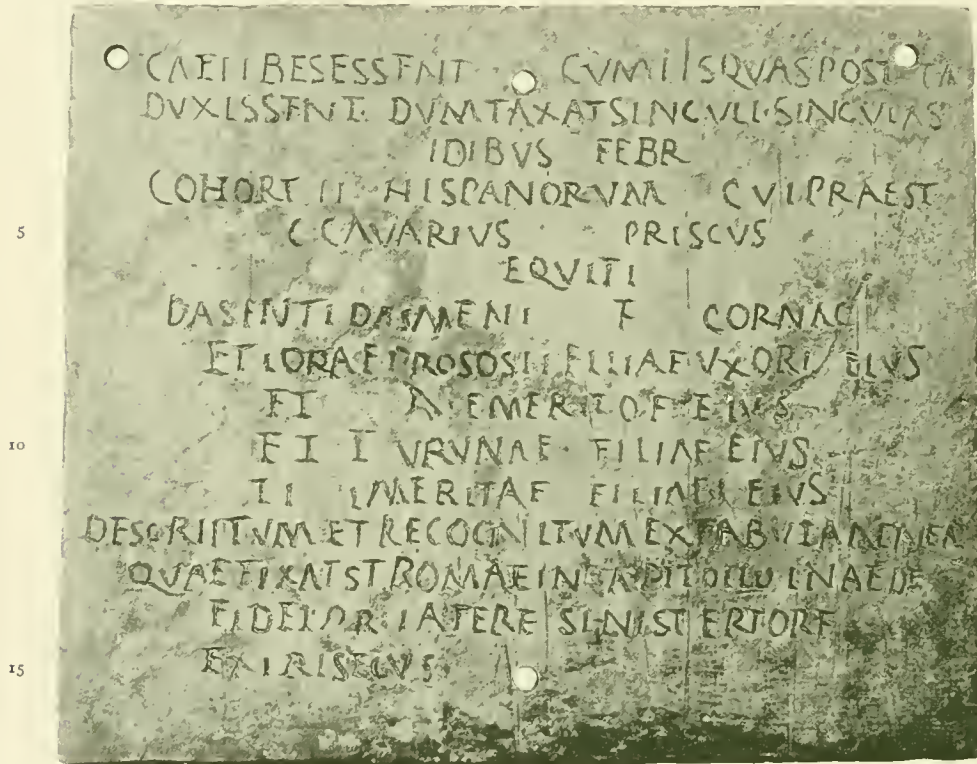 CAELIBES ESSENT CVM IISQVAS POSTEA
DVXISSENT DVMTAXAT SINGVLI SINGVLAS
IDIBVS FEBR
COHORT II HISPANORVM CVI PRAEST
5 C CAVARIVS PRISCVS
EQVITI
DASENTI DASMENI F CORNAC
ET IORAE PROSOSII FILIAE VXORI EIVS
ET EMERITO F EIVS
10 ET TVRVNAE FILIAE EIVS
EMERITAE FILIAE EIVS
DESCRIPTVM ET RECOGNITVM EX TABVLA AENEA
QVAE FIXA ST ROMAE IN CAPITOLIO IN AEDE
FIDEI P R LATERE SINISTERIORE
15 EXTRISECVS